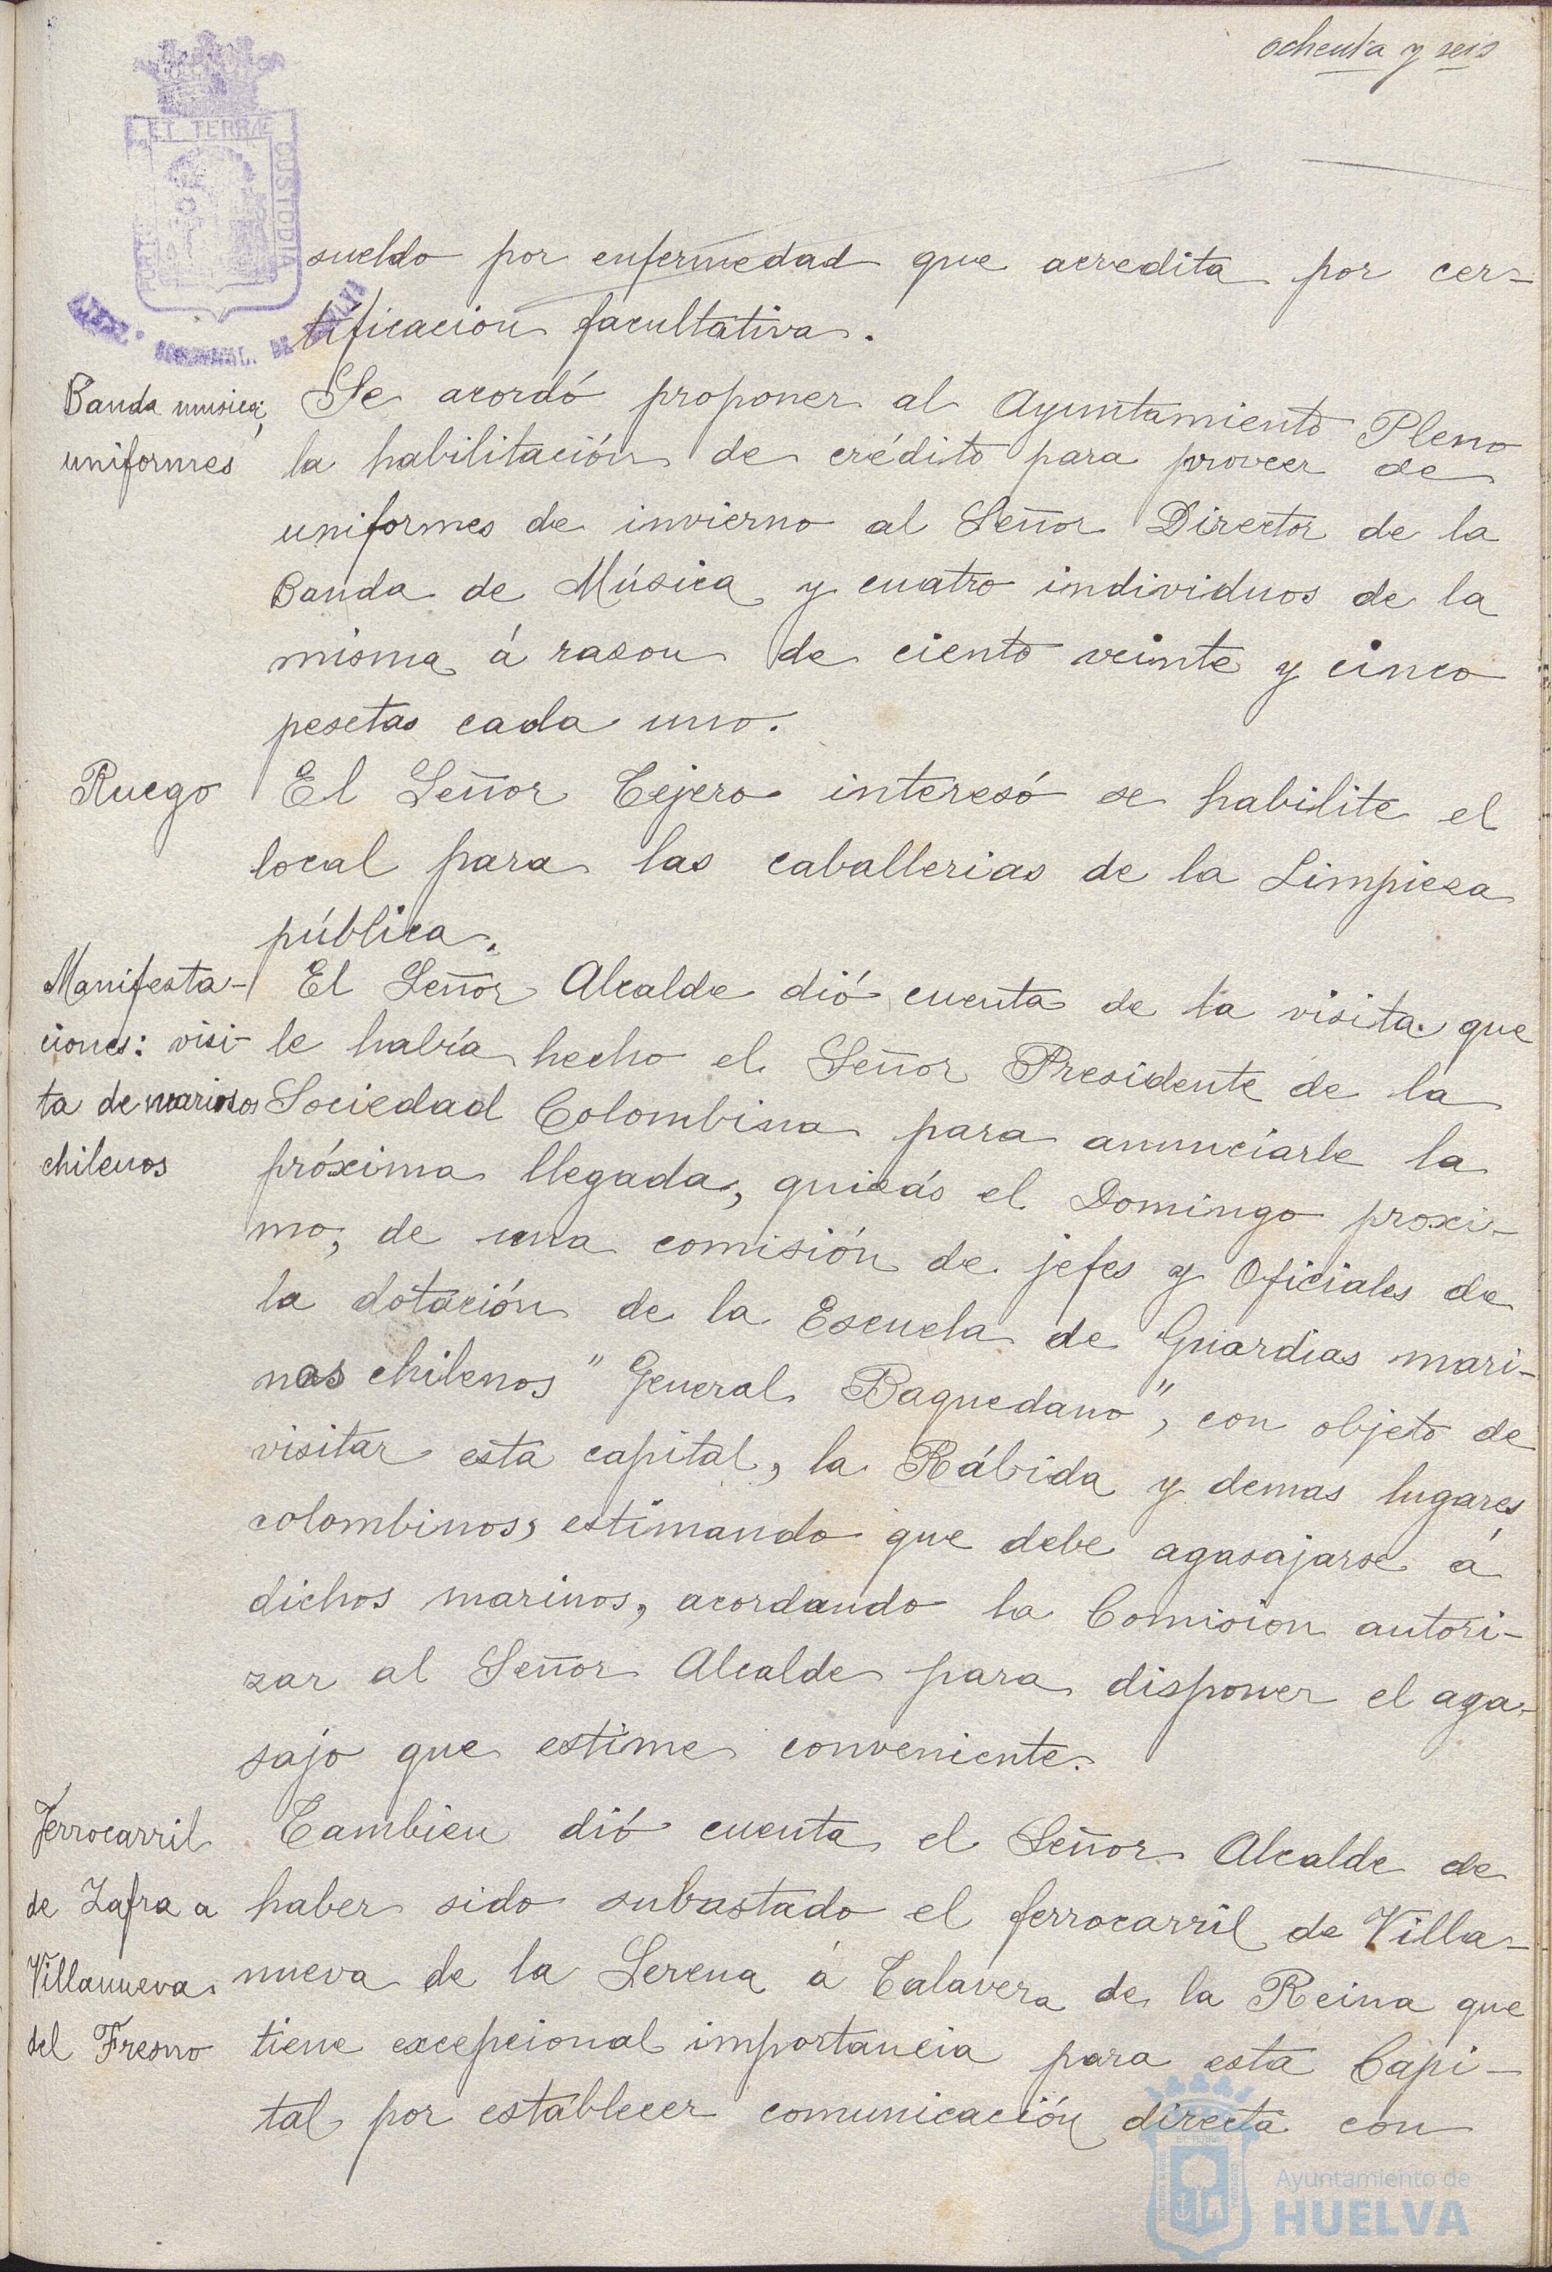 ochenta y seis
ET TERRAE
CUSTODIA
sueldo por enfermedad que acredita por cer-
tificacion facultativa.
Banda musica;
uniformes
Se acordó proponer al Ayuntamiento Pleno
la habilitación de crédito para proveer de
uniformes de invierno al Señor Director de la
Banda de Música y cuatro individuos de la
misma á razon de ciento veinte y cinco
pesetas cada uno.
Ruego
El Señor Tejero interesó se habilite el
local para las caballerias de la Limpieza
pública.
Manifesta-
ciones: visi-
ta de marinos
chilenos
El Señor Alcalde dió cuenta de la visita que
le había hecho el Señor Presidente de la
Sociedad Colombina para anunciarle la
próxima llegada, quizás el Domingo proxi-
mo, de una comisión de jefes y Oficiales de
la dotación de la Escuela de Guardias mari-
nas chilenos "General Baquedano", con objeto de
visitar esta capital, la Rábida y demas lugares
colombinos, estimando que debe agasajarse á
dichos marinos, acordando la Comision autori-
zar al Señor Alcalde para disponer el aga-
sajo que estime conveniente.
Ferrocarril
de Zafra a
Villanueva
del Fresno
Tambien dió cuenta el Señor Alcalde de
haber sido subastado el ferrocarril de Villa-
nueva de la Serena á Talavera de la Reina que
tiene excepcional importancia para esta Capi-
tal por establecer comunicación directa con
Ayuntamiento de
HUELVA